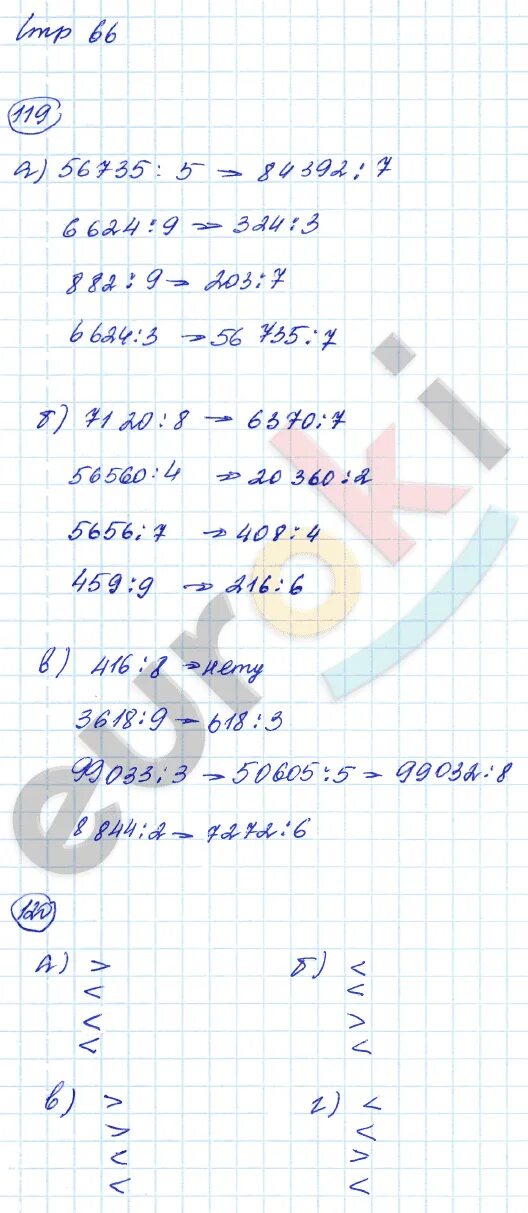 Стр 66
119
а) 56735 : 5 → 84392 : 7
6624 : 9 → 324 : 3
882 : 9 → 203 : 7
6624 : 3 → 56735 : 7
б) 7120 : 8 → 6370 : 7
56560 : 4 → 20360 : 2
5656 : 7 → 408 : 4
459 : 9 → 216 : 6
в) 416 : 8 → нету
3618 : 9 → 618 : 3
99033 : 3 → 50605 : 5 → 99032 : 8
8844 : 2 → 7272 : 6
120
а) > б) <
< <
< >
< <
в) > г) <
> <
< >
< <
euroki